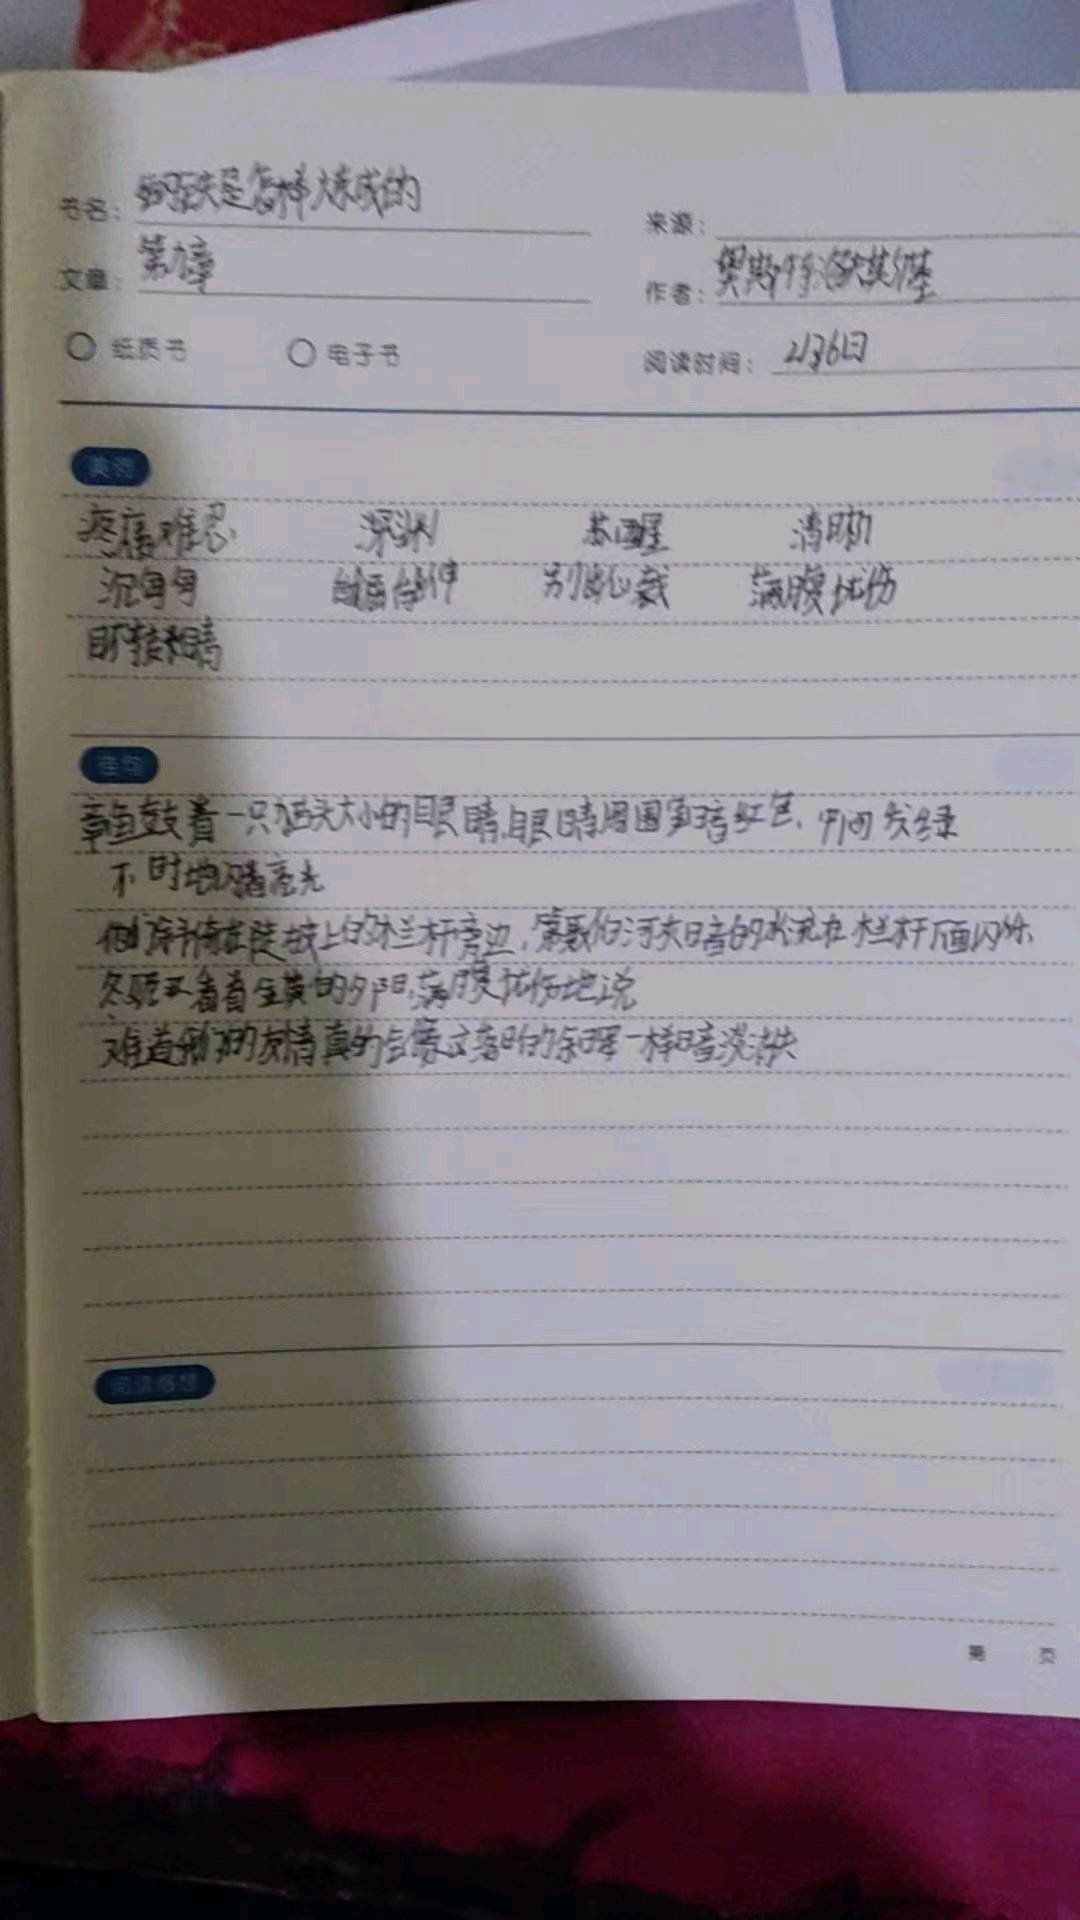 书名：钢铁是怎样炼成的
来源：
文章：第九章
作者：奥斯特洛夫斯基
纸质书 电子书 阅读时间：2月36日
美词
疼痛难忍 深渊 苏醒 清晰
沉甸甸 别出心裁 满腹忧伤
目不转睛
佳句
章鱼鼓着一只猫头大小的眼睛，眼睛周围暗红色、中间发绿
不时地闪着亮光
他们俩倚在上的栏杆旁边，第聂伯河灰暗的水流在栏杆下面闪烁
冬妮亚看着金黄的夕阳，满腹忧伤地说
难道我们的友情真的会像这落日的余晖一样暗淡消失
阅读感想
第 页